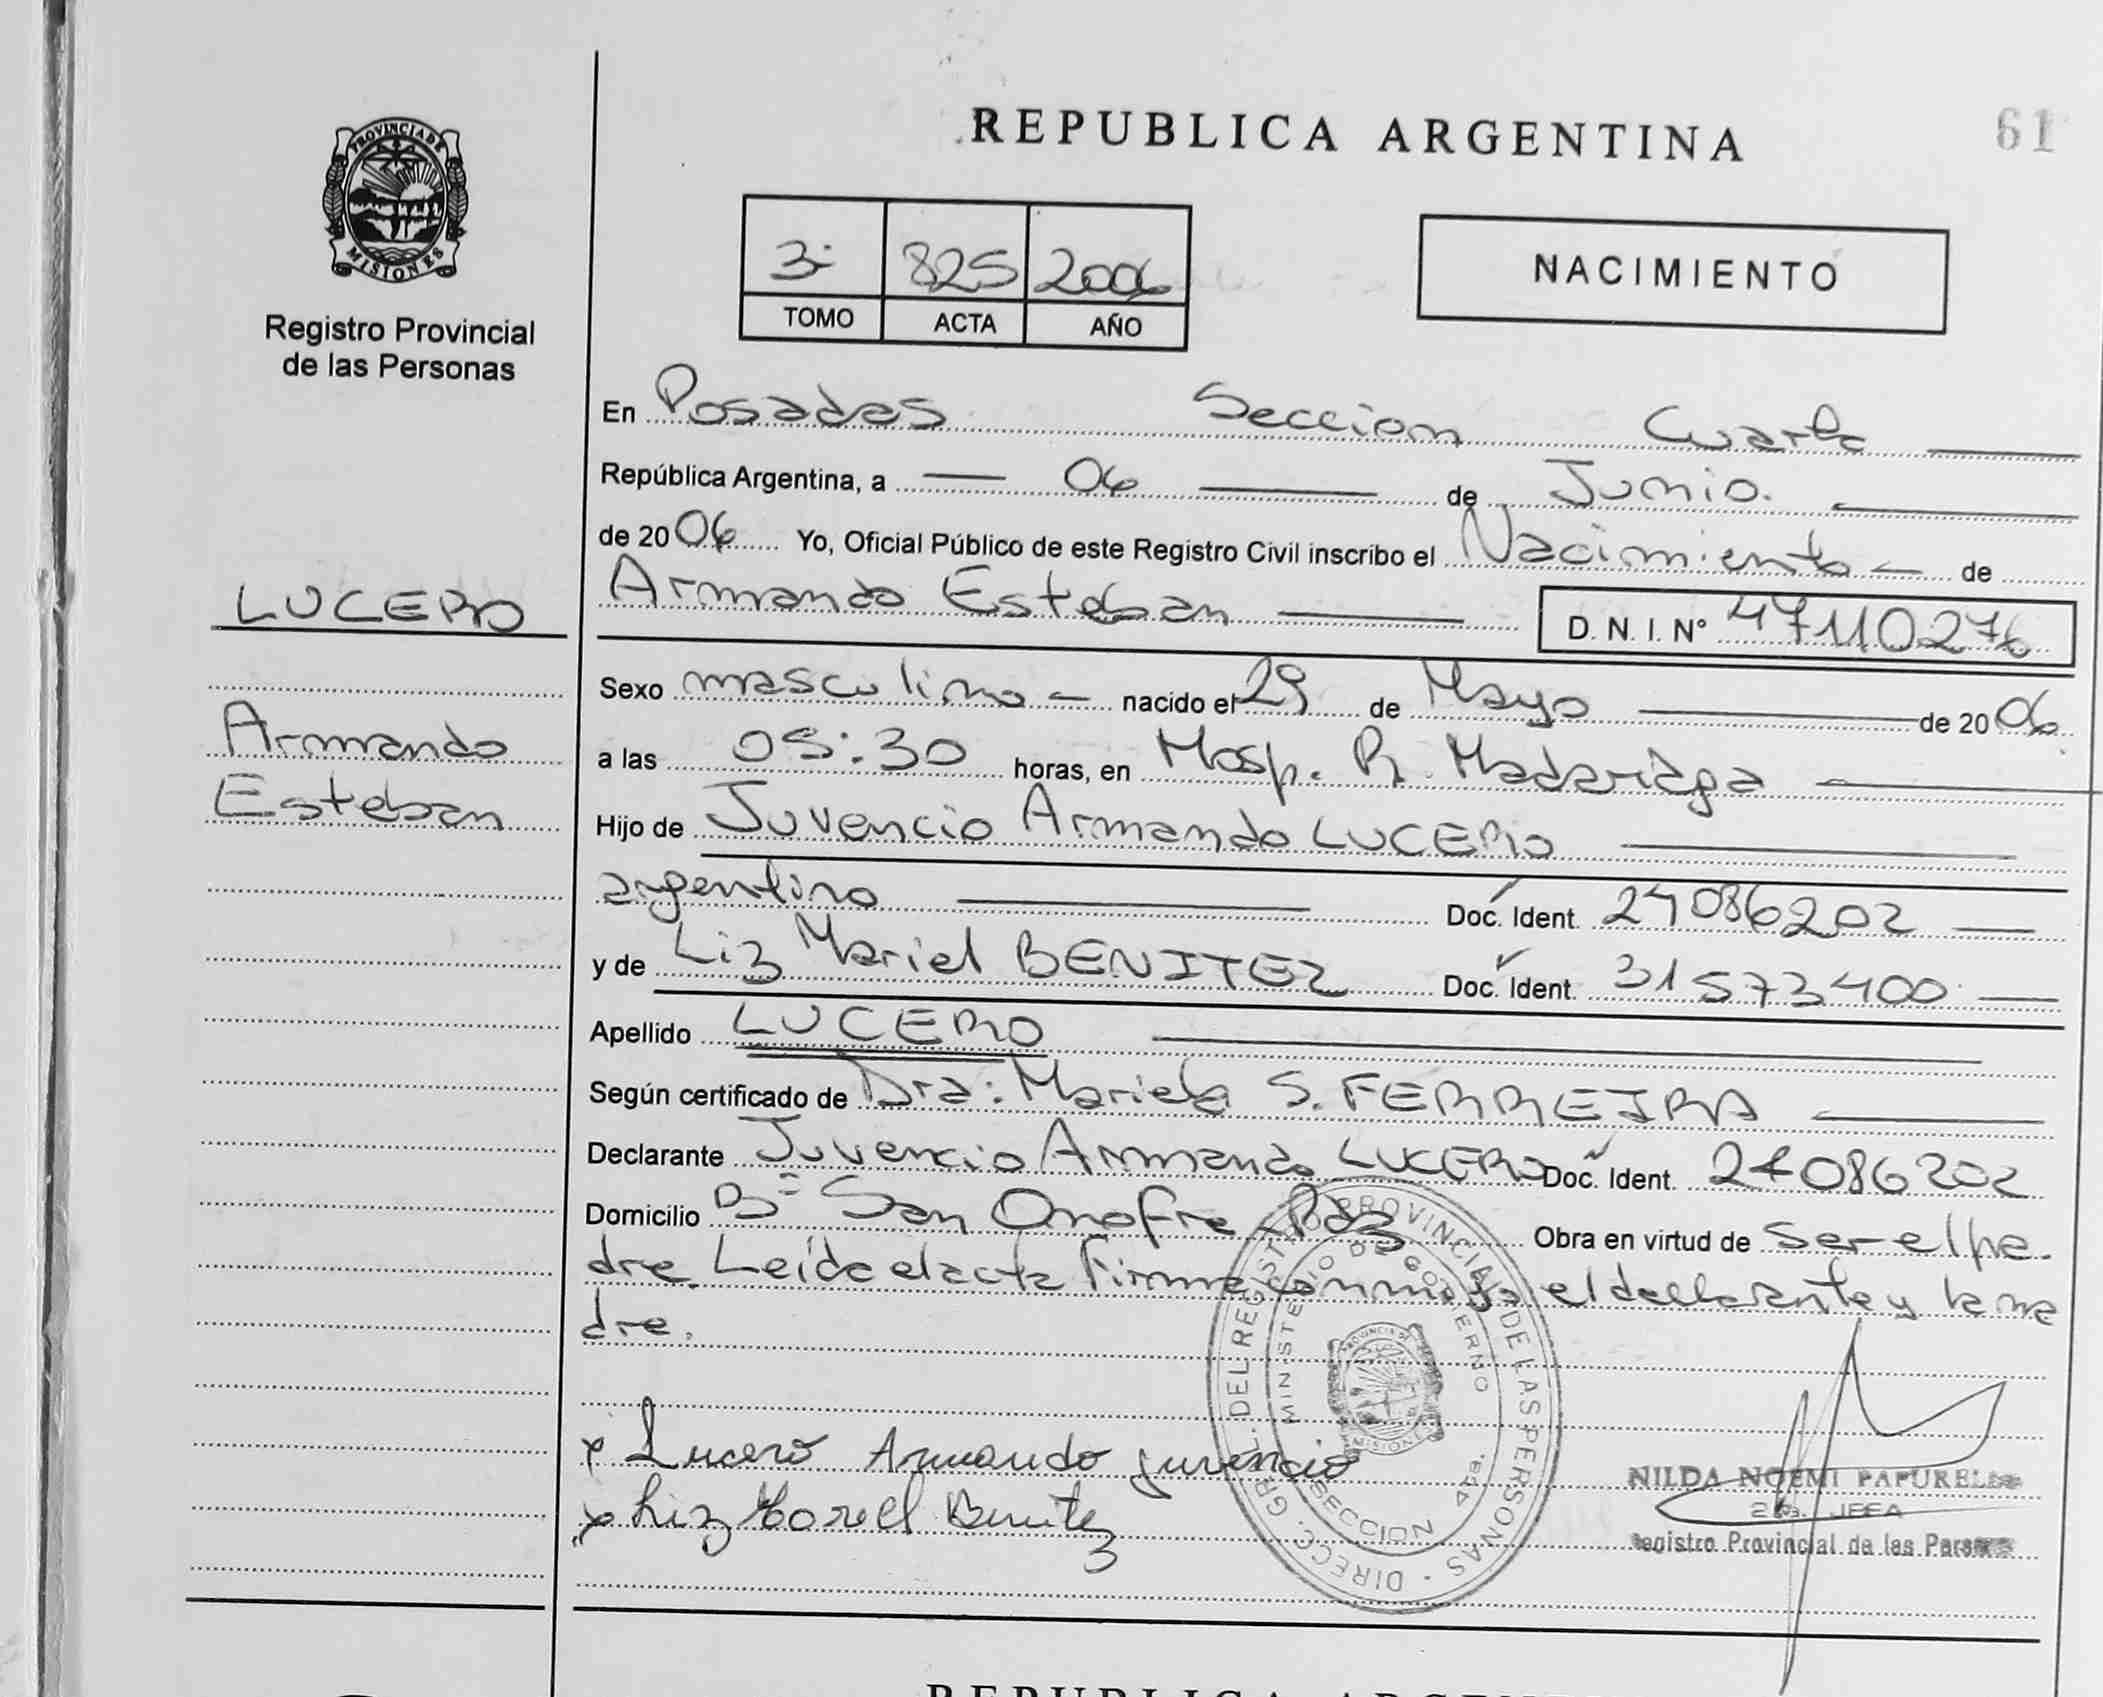 REPUBLICA ARGENTINA
61
PROVINCIA DE
MISIONES
Registro Provincial
de las Personas
3º 825 2006
TOMO ACTA AÑO
NACIMIENTO
En Posadas Seccion Cuarta
República Argentina, a 06 de Junio.
de 2006 Yo, Oficial Público de este Registro Civil inscribo el Nacimiento de
LUCERO
Armando Esteban D. N. I. Nº 47110276
Sexo masculino nacido el 29 de Mayo de 2006
Armando
a las 05:30 horas, en Hosp. R. Madariaga
Esteban
Hijo de Juvencio Armando LUCERO
argentino Doc. Ident. 24086202
y de Liz Mariel BENITEZ Doc. Ident. 31573400
Apellido LUCERO
Según certificado de Dra: Mariela S. FERREIRA
Declarante Juvencio Armando LUCERO Doc. Ident. 24086202
Domicilio Bº San Onofre Pdas Obra en virtud de ser el pa-
dre. Leída el acta firma conmigo el declarante y la ma
dre.
DIRECC. GRAL. DEL REGISTRO PROVINCIAL DE LAS PERSONAS
MINISTERIO DE GOBIERNO
PROVINCIA DE
MISIONES
SECCION 4ta.
x Lucero Armando juvencio
x Liz Mariel Benitez
NILDA NOEMI
JEFA
Registro Provincial de las Personas
REPUBLICA ARGENTINA